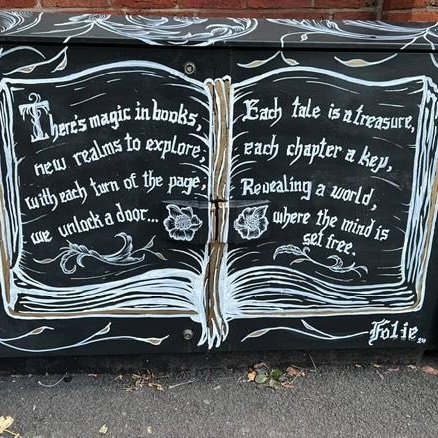 There's magic in books,
new realms to explore,
with each turn of the page,
we unlock a door...
Each tale is a treasure,
each chapter a key,
Revealing a world,
where the mind is
set free.
Folie
24